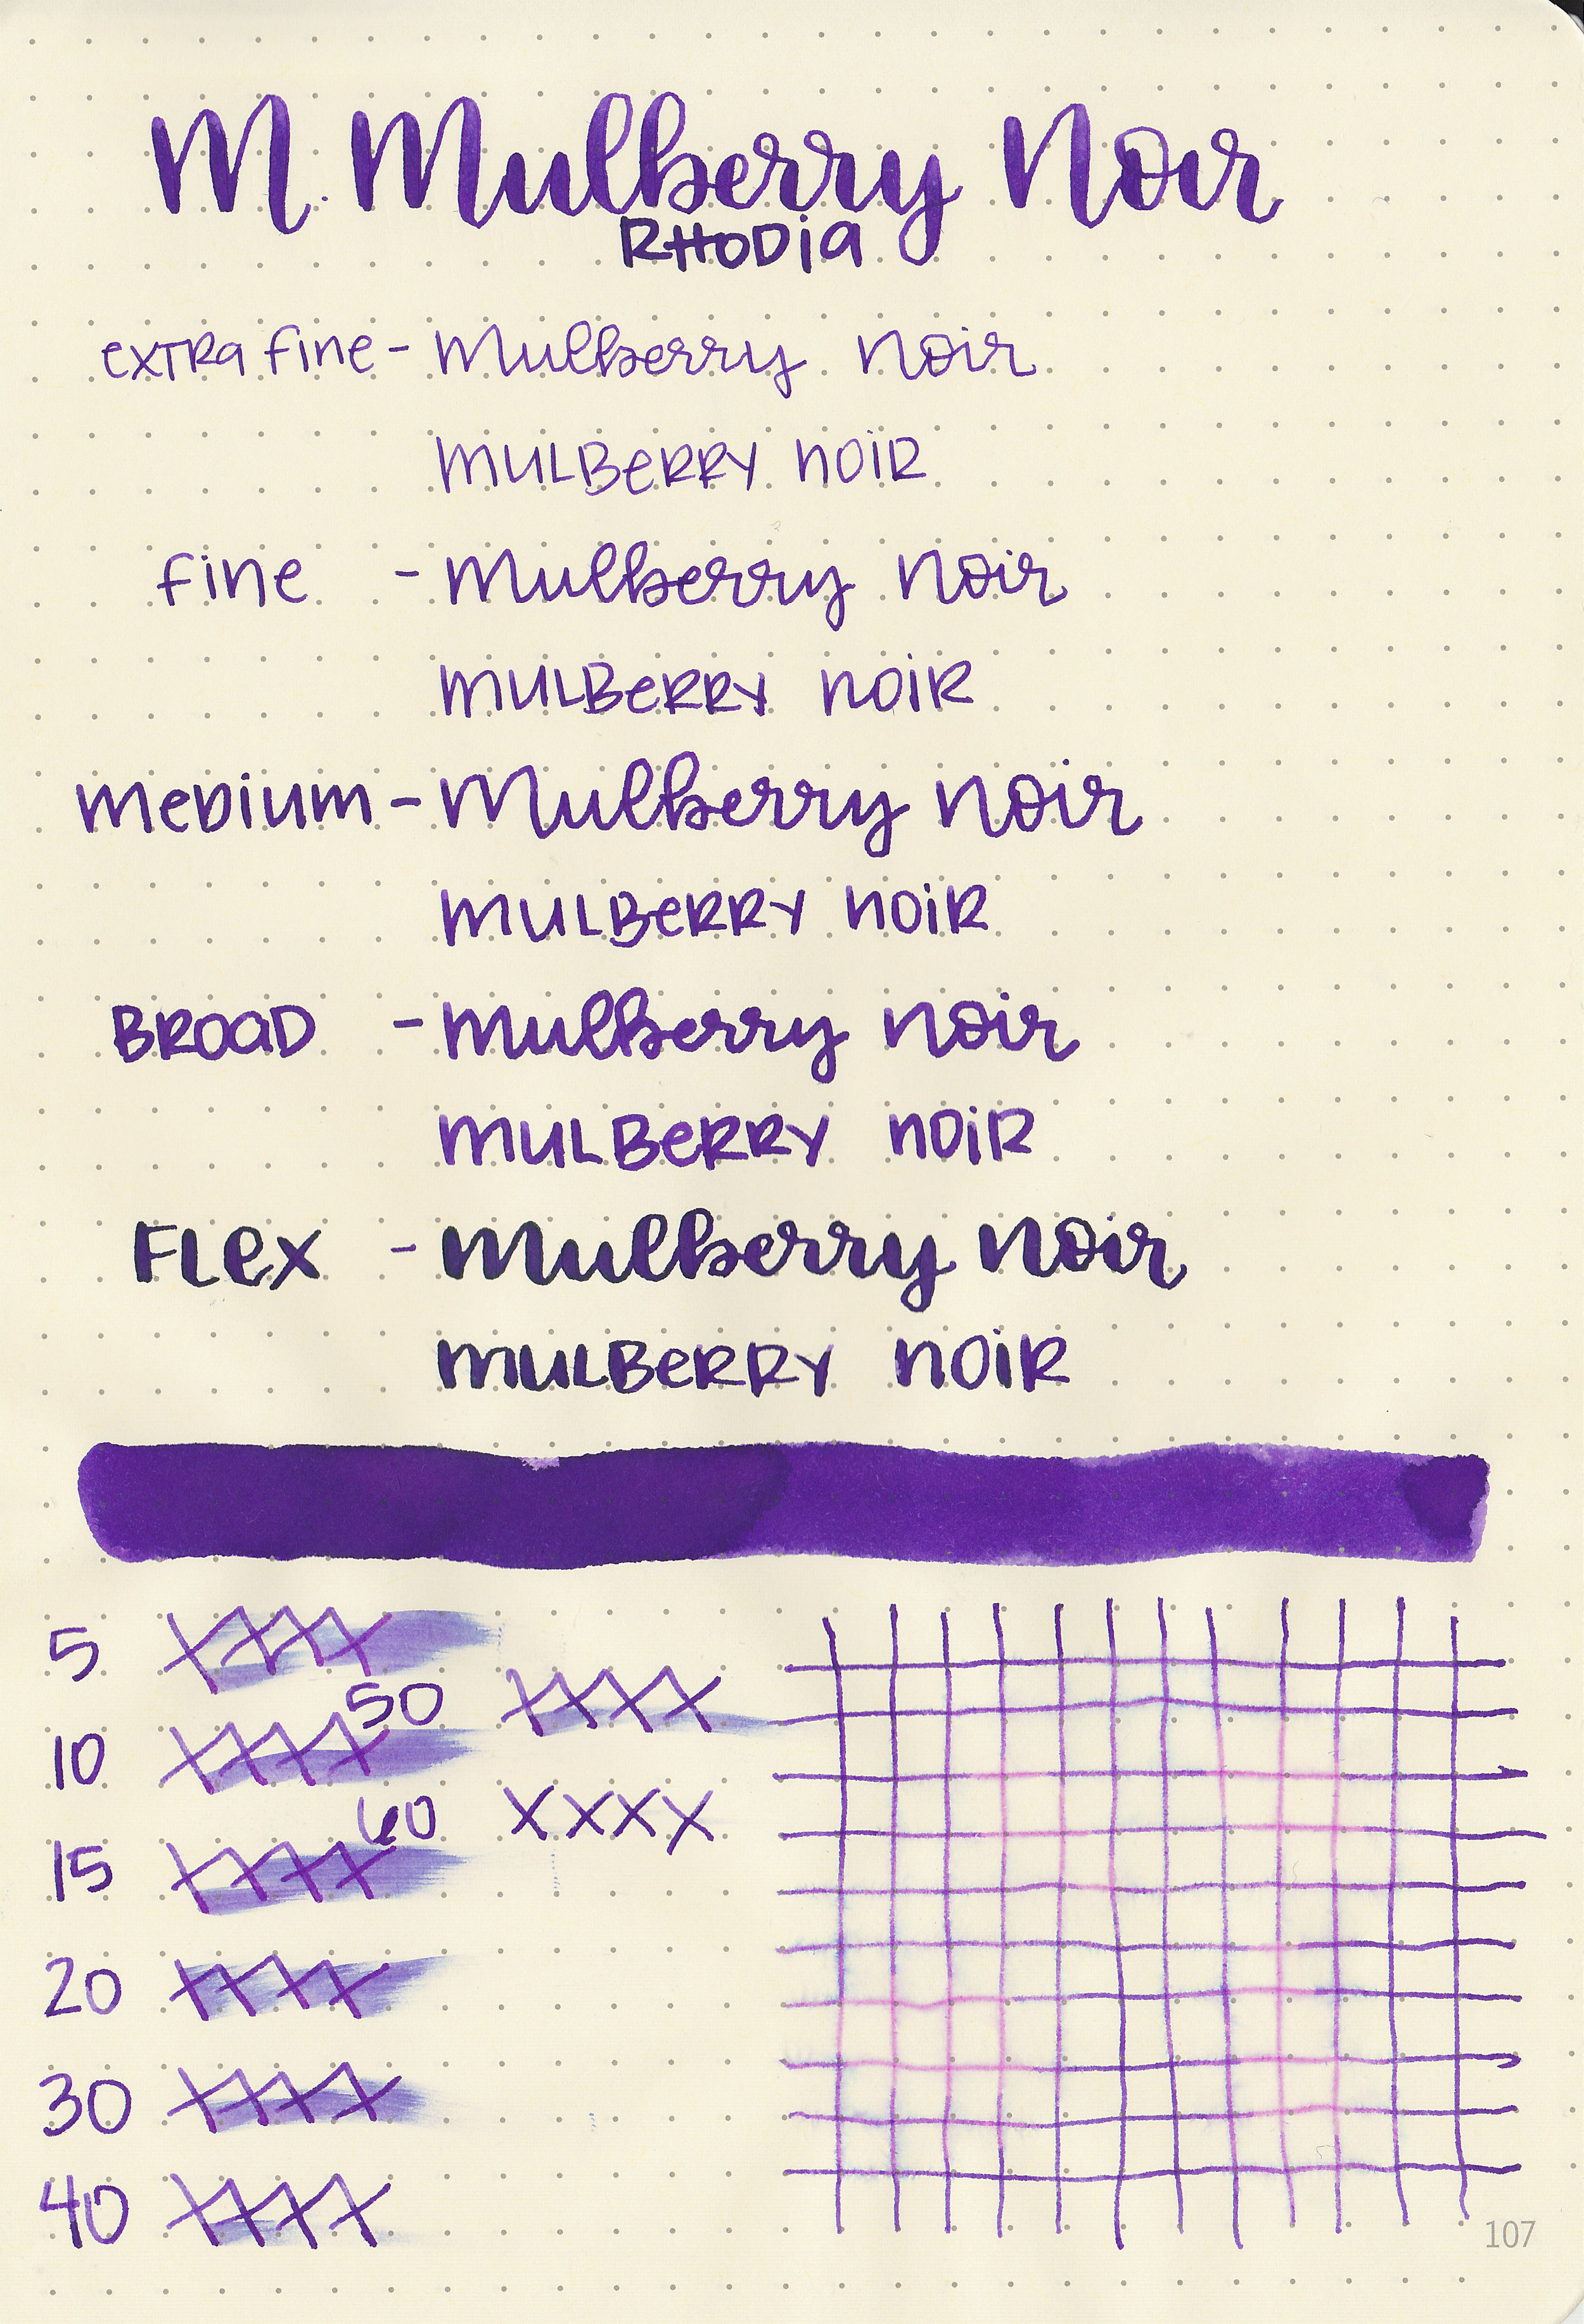 M. Mulberry Noir
RHODIA
extra fine - Mulberry noir
mulberry noir
fine - Mulberry noir
mulberry noir
medium - Mulberry noir
mulberry noir
Broad - Mulberry noir
mulberry noir
Flex - Mulberry noir
mulberry noir
5 XXXX
50 XXXX
10 XXXX
60 XXXX
15 XXXX
20 XXXX
30 XXXX
40 XXXX
107